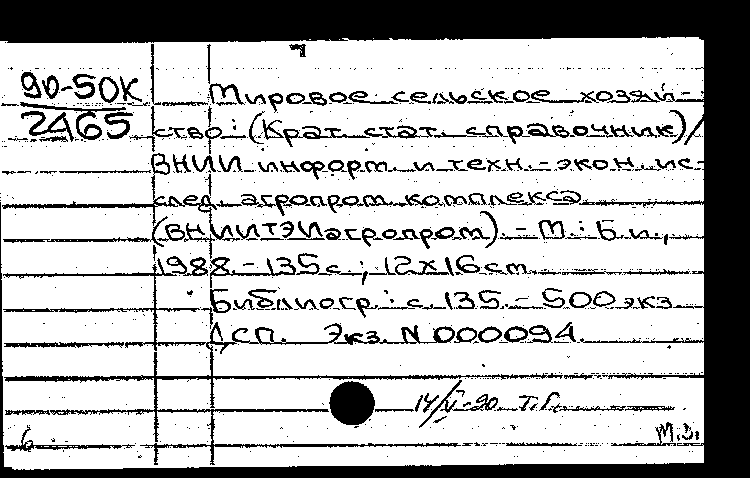 90-50К
2465
Мировое сельское хозяй-
ство: (Крат. стат. справочник)/
ВНИИ информ. и техн.-экон. ис-
след. агропром. комплекса
(ВНИИТЭИагропром). - М.: Б.и.,
1988. - 135с.; 12х16см
Библиогр.: с. 135. - 500 экз.
ДСП. Экз. N 000094.
14/V-90 Т.Г.
б